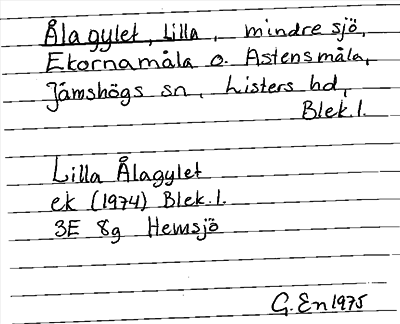 Ålagylet, Lilla, mindre sjö,
Ekornamåla o. Astensmåla,
Jämshögs sn, Listers hd,
Blek. l.
Lilla Ålagylet
ek (1974) Blek. l.
3E 8g Hemsjö
G. En 1975